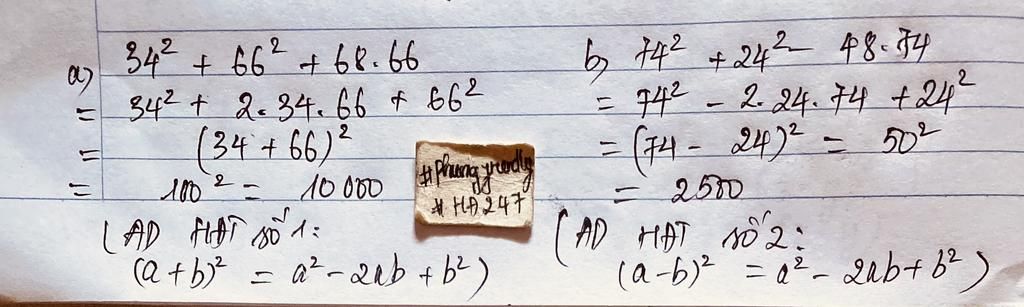 a) 34² + 66² + 68.66
= 34² + 2.34.66 + 66²
= (34 + 66)²
= 100² = 10 000
(AD HĐT số 1:
(a + b)² = a² - 2ab + b²)
b) 74² + 24² - 48.74
= 74² - 2.24.74 + 24²
= (74 - 24)² = 50²
= 2500
(AD HĐT số 2:
(a-b)² = a² - 2ab + b²)
# HĐ247